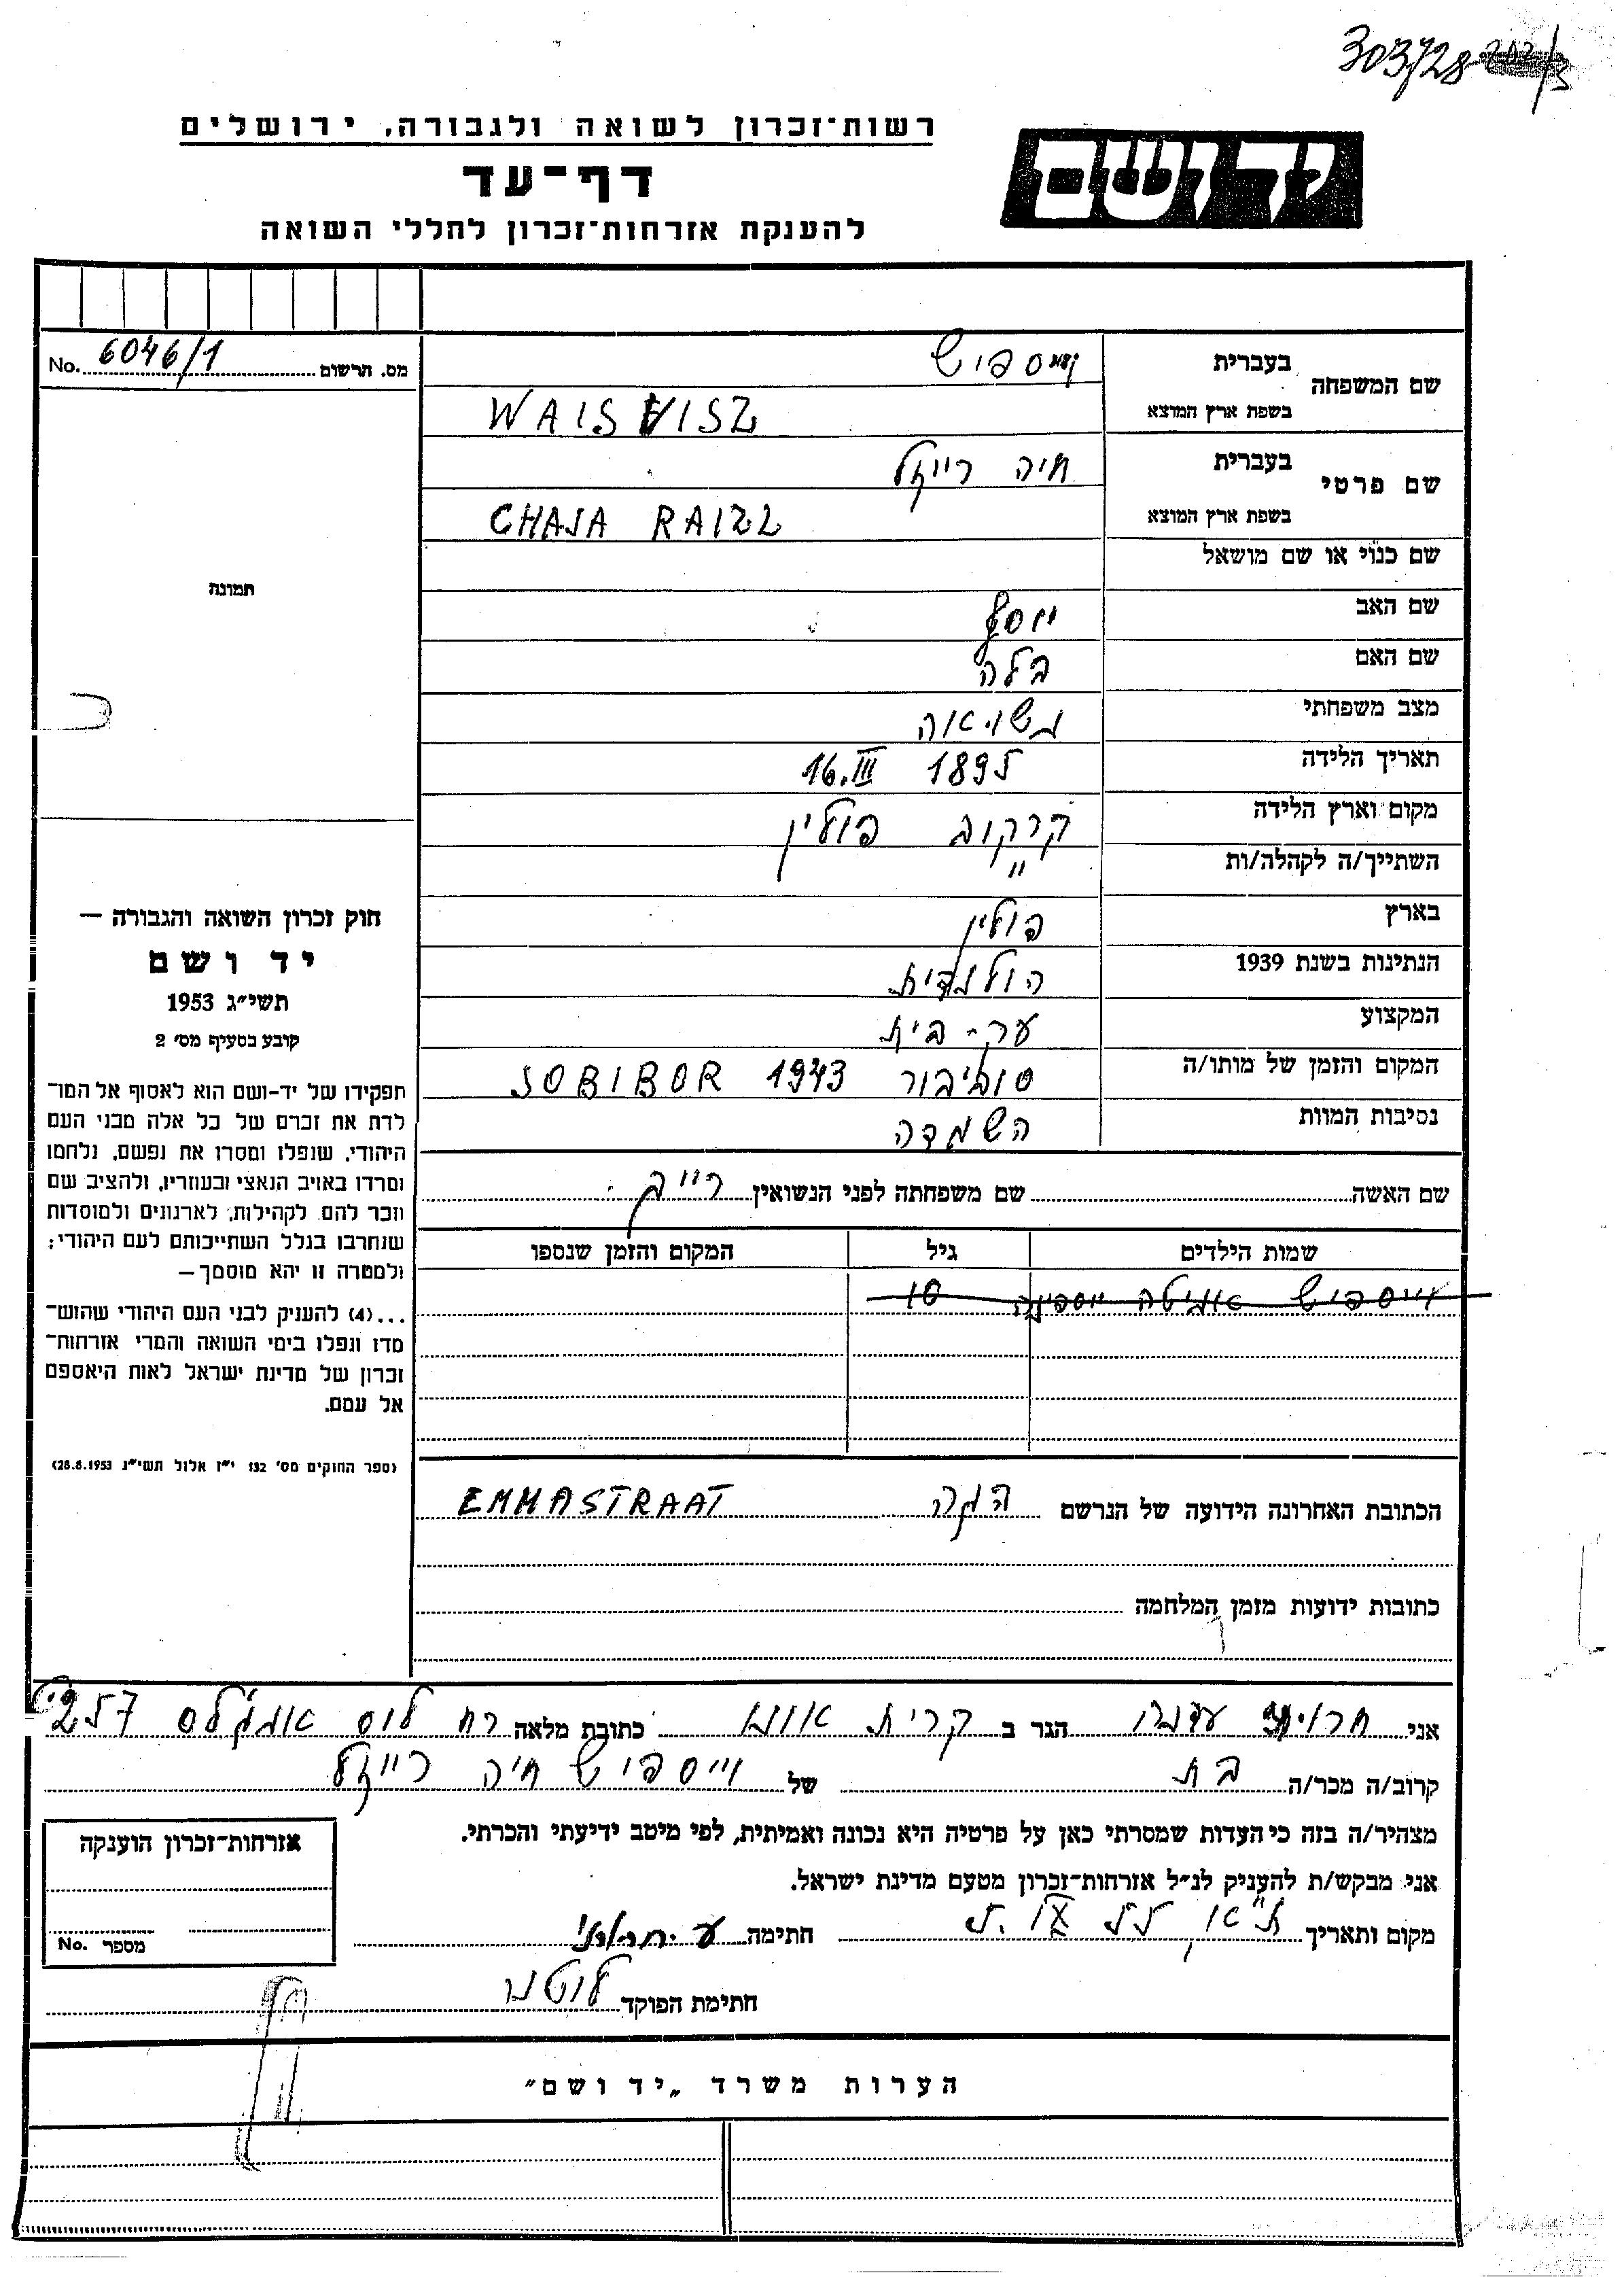 303/28
רשות־זכרון לשואה ולגבורה, ירושלים
יד ושם
דף־עד
להענקת אזרחות־זכרון לחללי השואה
מס. תרשום No. 6046/1
שם המשפחה
בעברית וייספיש
בשפת ארץ המוצא WAISVISZ
שם פרטי
בעברית חיה רייזל
בשפת ארץ המוצא CHAJA RAIZL
שם כנוי או שם מושאל
תמונה
שם האב יוסף
שם האם בלה
מצב משפחתי נשואה
תאריך הלידה 1895 16.III
מקום וארץ הלידה קרקוב פולין
השתייך/ה לקהלה/ות "
בארץ פולין
הנתינות בשנת 1939 הולנדית
המקצוע עק-בית
המקום והזמן של מותו/ה סוביבור 1943 SOBIBOR
נסיבות המוות השמדה
שם האשה שם משפחתה לפני הנשואין רייב
שמות הילדים גיל המקום והזמן שנספו
וייספיש 10
חוק זכרון השואה והגבורה —
יד ושם
תשי״ג 1953
קובע בסעיף מס׳ 2
תפקידו של יד-ושם הוא לאסוף אל המו־
לדת את זכרם של כל אלה מבני העם
היהודי, שנפלו ומסרו את נפשם, נלחמו
ומרדו באויב הנאצי ובעוזריו, ולהציב שם
וזכר להם, לקהילות, לארגונים ולמוסדות
שנחרבו בגלל השתייכותם לעם היהודי;
ולמטרה זו יהא מוסמך —
...(4) להעניק לבני העם היהודי שהוש־
מדו ונפלו בימי השואה והמרי אזרחות־
זכרון של מדינת ישראל לאות היאספם
אל עמם.
(ספר החוקים מס׳ 132 י״ז אלול תשי״ג 28.8.1953)
הכתובת האחרונה הידועה של הנרשם האג EMMASTRAAT
כתובות ידועות מזמן המלחמה
אני עדנה הגר ב קרית אונו כתובת מלאה רח לוס אנג'לס 257
קרוב/ה מכר/ה בת של וייספיש חיה רייזל
מצהיר/ה בזה כי העדות שמסרתי כאן על פרטיה היא נכונה ואמיתית, לפי מיטב ידיעתי והכרתי.
אני מבקש/ת להעניק לנ״ל אזרחות־זכרון מטעם מדינת ישראל.
מקום ותאריך חתימה
חתימת הפוקד
אזרחות־זכרון הוענקה
מספר No.
הערות משרד „יד ושם"